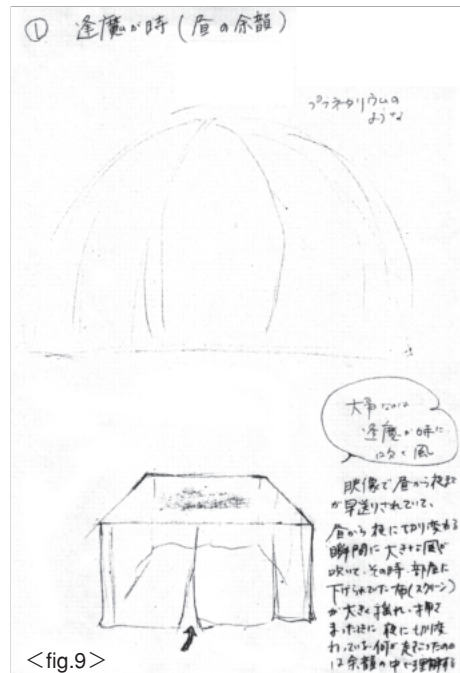 ① 逢魔が時(昼の余韻)
プラネタリウムの
ような
大事なのは
逢魔が時に
吹く風
映像で昼から夜まで
が早送りされていて、
昼から夜に切り変わる
瞬間に大きな風が
吹いて、その時、部屋に
下げられていた布(スクリーン)
が大きく揺れ、揺れ
わっている。何が起こったのか
は余韻の中で理解する
<fig.9>